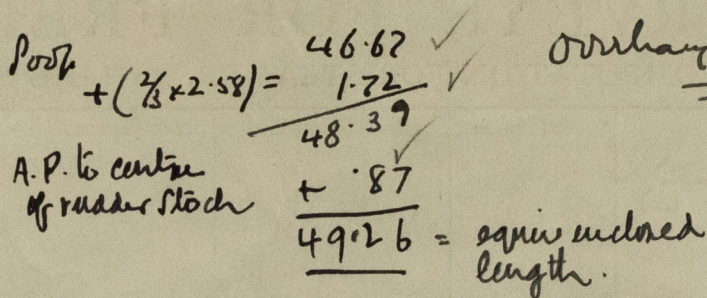 Poop 46.67 ✓ Overhang
+ (2/3 x 2.58) = 1.72 ✓
48.39 ✓
A.P. to centre + .87
of rudder stock
49.26 = equiv enclosed
length.